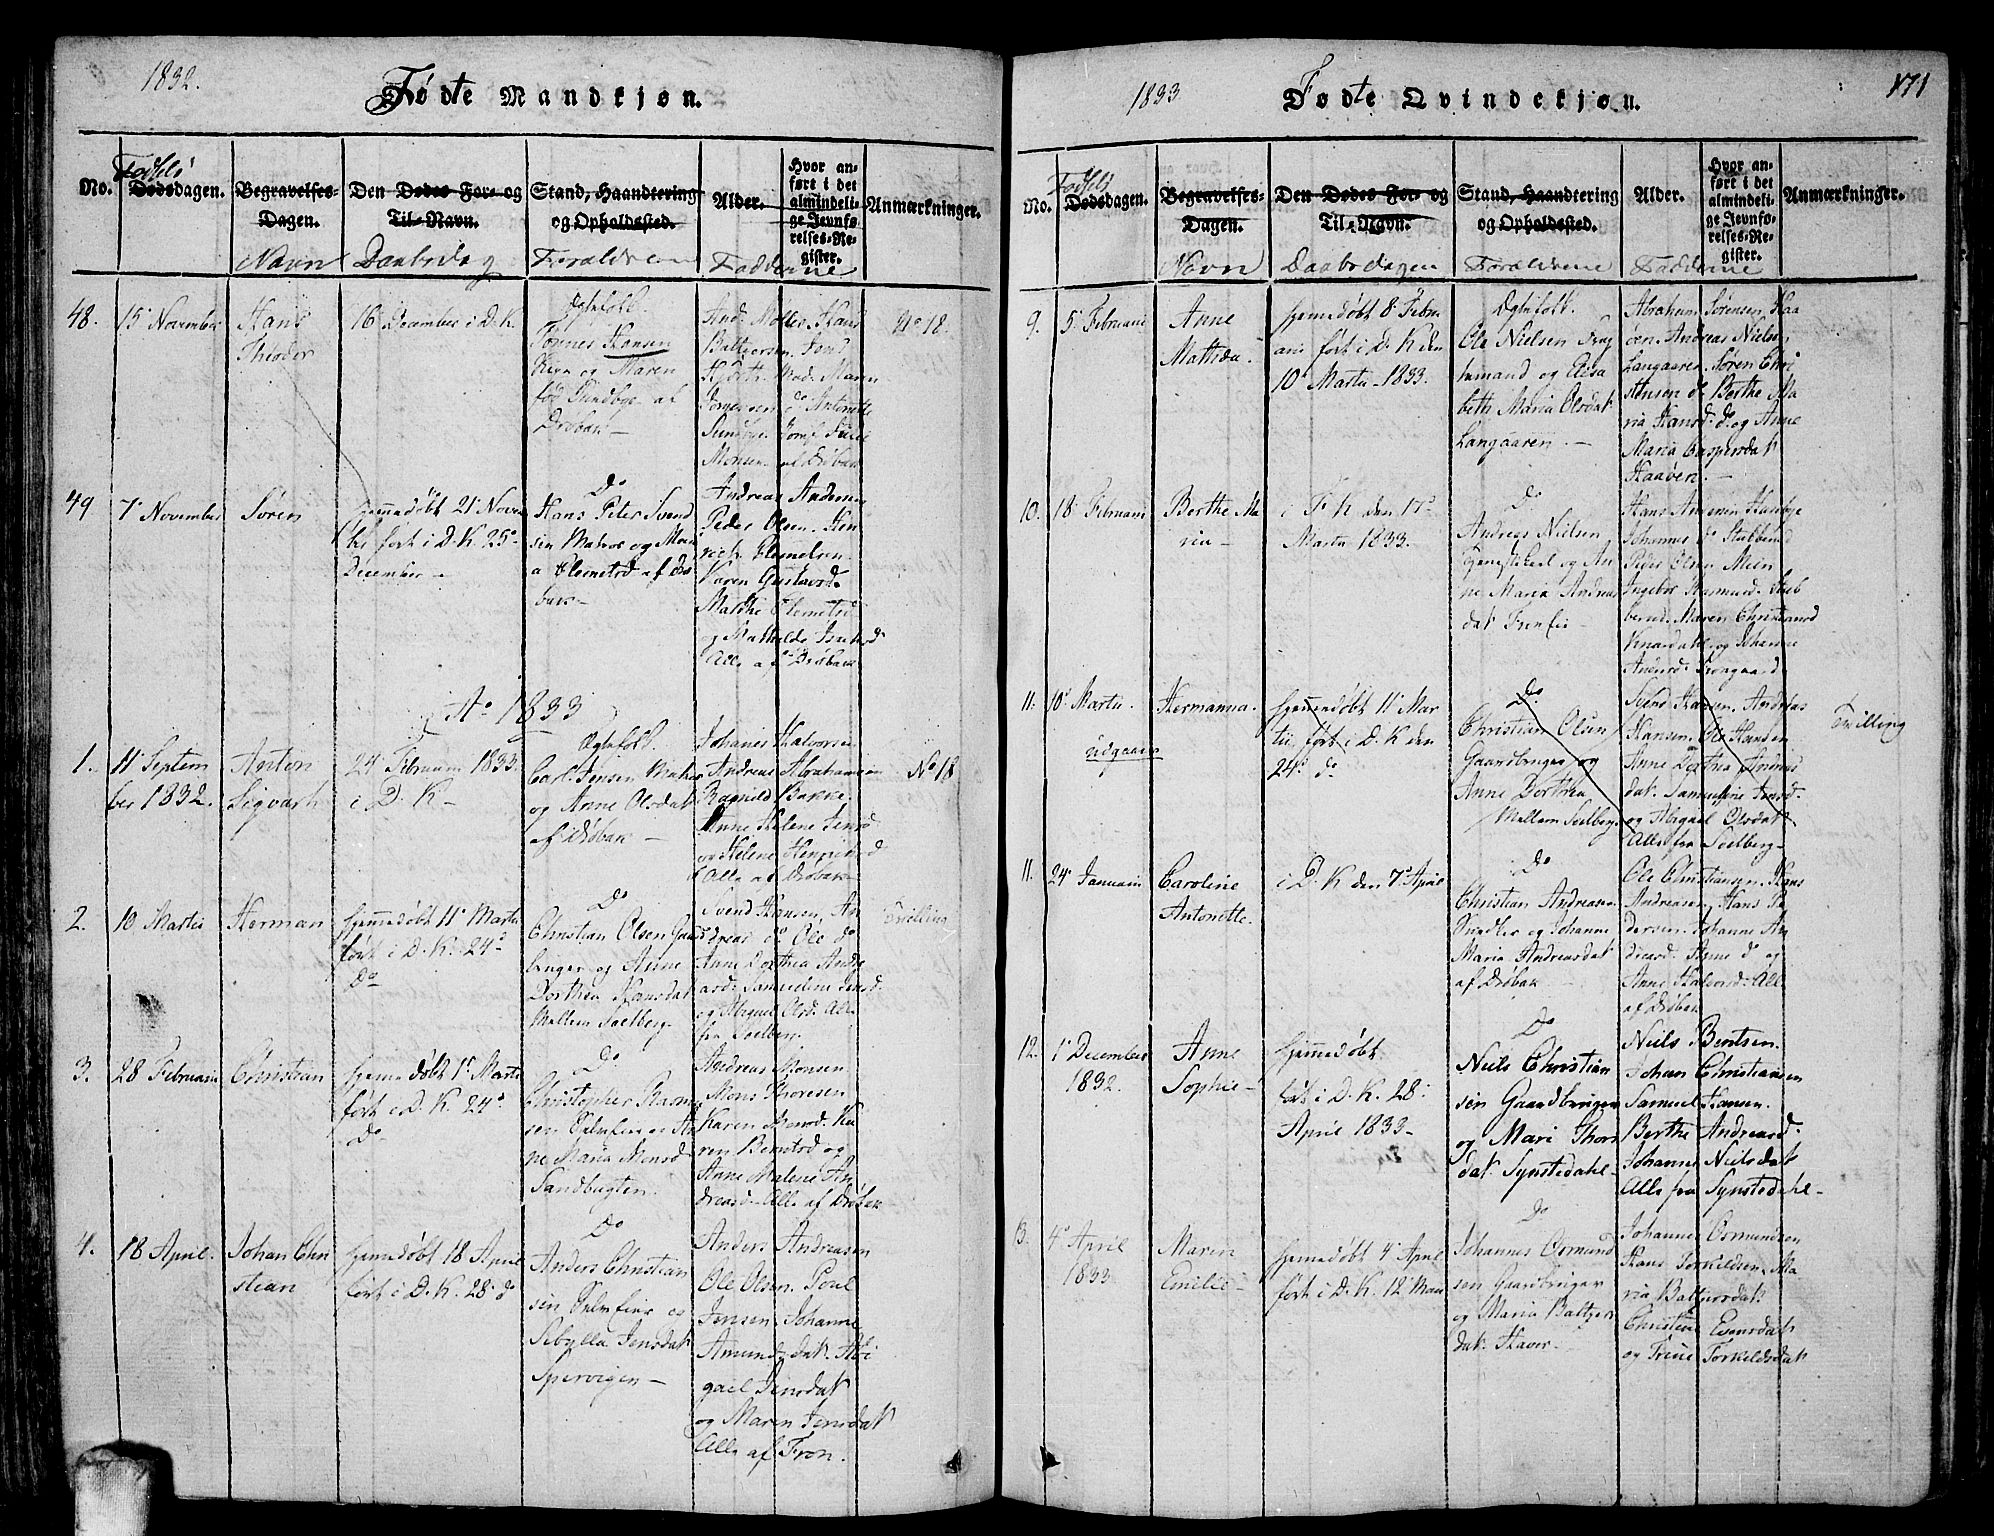 1832.
Fødte Mandkjøn.
Fødsels
No.
Dødsdagen.
Begravelses-
Dagen.
Navn
Den Dødes For- og
Til-Navn.
Daabsdag
Stand, Haandtering
og Opholdssted.
Forældrene
Alder.
Fadderne
Hvor an-
ført i det
almindeli-
ge Jevnfø-
relses-Re-
gister.
Anmærkninger.
48.
15 November
Hans
Theodor
16 December i D. K.
Ægtefolk
Tønnes Hansen
og Maren
født Sundbye af
Drøbak
And. Møller. Hans
Baltzersen.
Mad. Maren
Jørgensen Antonette
Sundbye.
Monsen af Drøbak
No 18.
49
7 November
Søren
Hjemmedøbt 21 Novem
ber ført i D. K. 25
December
Do
Hans Peter Svend
sen Matros og Mari
a Clemetsd af Drø
bak
Andreas Andersen
Peder Olsen. Hen
rich Clemetsen
Karen Gustavsd.
Mathe Clemetsd
og Mathilde
Alle af Drøbak
Ao 1833
1.
11 Septem
ber 1832.
Anton
Sigvart
24 Februarii 1833.
i D. K
Ægtefolk
Carl Jensen Matros
og Anne Olsdat
af Drøbak
Johannes Halvorsen
Andreas Abrahamsen
Ragnild Bakke.
Anne Helene Jensd
og Helene Henrichsd
Alle af Drøbak
No 18
2.
10 Martii
Herman
Hjemmedøbt 11 Martii
ført i D. K. 24
Do
Do
Christian Olsen Gaard
bruger og Anne
Dorthea Hansdat
Mellem Soelberg
Svend Hansen, An
dreas do Ole do
Anne Dorthea Andre
asd. Samueline Jensd.
og Abigael Olsd. Alle
fra Soelberg.
Tvilling
3.
28 Februarii
Christian
Hjemmedøbt 1 Martii
ført i D. K. 24
Do
Do
Christopher Rasmus
sen Selveier og An
ne Maria Monsd
Sandbugten.
Andreas Monsen
Mons Thoresen
Karen Monsd. Ka
ren Berntsd og
Anne Malene An
dreasd. Alle af Drøbak
4.
18 April.
Johan Chri
stian
Hjemmedøbt 18 April
ført i D. K. 28 do
Do
Anders Christian
sen Selveier og
Sebylla Jensdat
Spervigen
Anders Andreasen
Ole Olsen. Poul
Jensen. Johanne
Amundsdat. Abi
gael Jensdat
og Maren Jensdat
Alle af Fron.
1833
Fødte Qvindekjøn.
171
Fødsels
No.
Dødsdagen.
Begravelses-
Dagen.
Navn
Den Dødes For- og
Til-Navn.
Daabsdagen
Stand, Haandtering
og Opholdssted.
Forældrene
Alder.
Fadderne
Hvor an-
ført i det
almindeli-
ge Jevnfø-
relses-Re-
gister.
Anmærkninger.
9.
5 Februarii
Anne
Mathea.
Hjemmedøbt 8 Febru
arii ført i D. K den
10 Martii 1833.
Ægtefolk.
Ole Nielsen
og Elisa
beth Maria Olsdat
Langaaren.
Abraham Sørensen Haa
øen. Andreas Nielsen
Langaaren. Søren Chri
stensen do Berthe Ma
ria Hansd. do. og Anne
Maria Caspersdat
Haaøen.
10.
18 Februarii
Berthe Ma
ria
i F. K den 17
Martii 1833.
Do
Andreas Nielsen
Tjenestekarl og An
ne Maria Andreas
dat
Hans Andersen
Johannes do Stubberud
Peder Olsen
Ingebor Rasmusd. Stub
berud. Maren Christiansd
Knardahl og Johanne
Andersd.
11.
10 Martii.
udgaaer
Hermanna.
Hjemmedøbt 11 Mar
tii ført i D. K den
24 do
Do
Christian Olsen
Gaardbruger og
Anne Dorthea
Mellem Soelberg
Svend Hansen. Andreas
Hansen. Ole Hansen
Anne Dorthea Andreas
dat. Samueline Jensd.
og Abigael Olsdat.
Alle fra Soelberg
Tvilling
11.
24 Januarii
Caroline
Antonette.
i D. K den 7 April
Do
Christian Andreasen
og Johanne
Maria Andreasdat
af Drøbak
Ole Christiansen. Hans
Andreasen. Hans Pe
dersen. Johanne An
dreasd. Anne do og
Anne Halvorsd. Alle
af Drøbak
12.
1 December
1832.
Anne
Sophie
Hjemmedøbt
ført i D. K. 28
April 1833
Do
Niels Christian
sen Gaardbruger
og Mari Thors
dat. Synstedahl
Niels Bentsen.
Johan Christiansen
Samuel Hansen.
Berthe Andreasd.
Johanne Nielsdat
Alle fra Synstedahl
13.
4 April
1833
Maren
Emilie
Hjemmedøbt 4 April
ført i D. K. 12 Maii
Do
Johannes Osmund
sen Gaardbruger
og Maria Baltzers
dat. Haver
Johannes Osmundsen
Hans Torkildsen. Ma
ria Baltzersdat.
Christine Evensdat
og Trine Torkildsdat